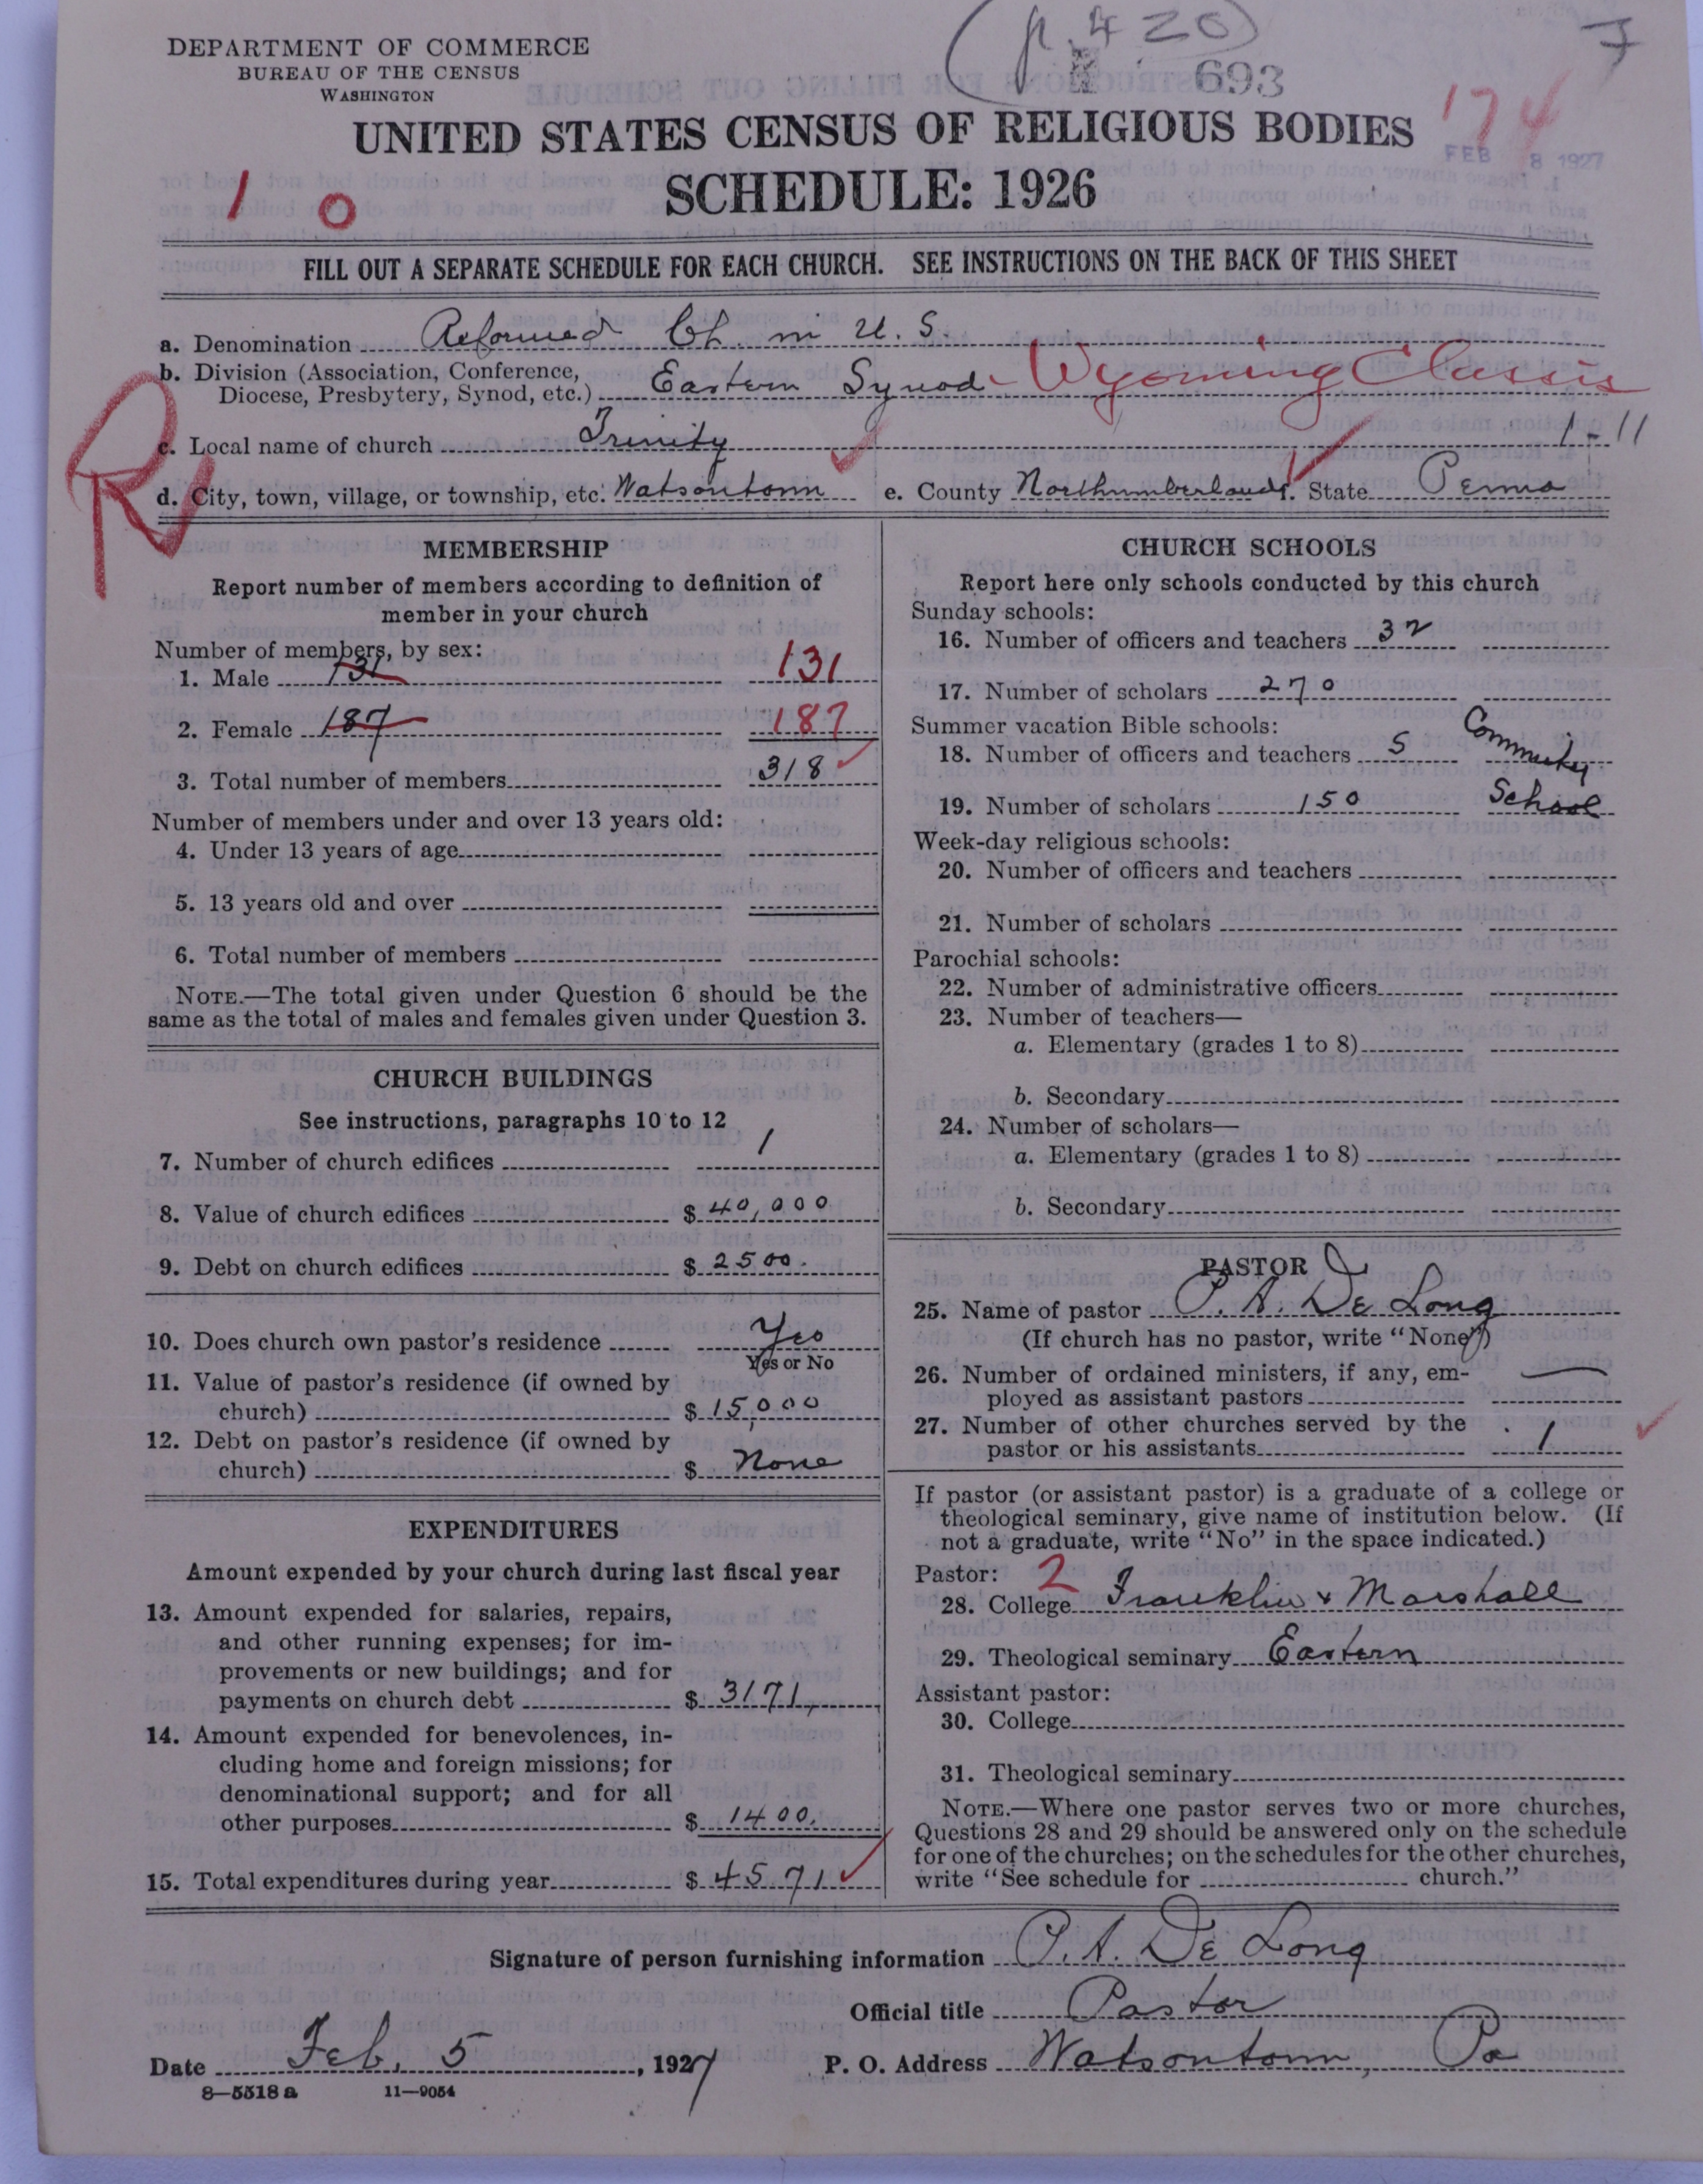 (p. 420)
7
DEPARTMENT OF COMMERCE
BUREAU OF THE CENSUS
WASHINGTON
693
174
UNITED STATES CENSUS OF RELIGIOUS BODIES
FEB 8 1927
SCHEDULE: 1926
1 0
FILL OUT A SEPARATE SCHEDULE FOR EACH CHURCH. SEE INSTRUCTIONS ON THE BACK OF THIS SHEET
a. Denomination Reformed Ch. in U. S.
b. Division (Association, Conference,
Diocese, Presbytery, Synod, etc.) Eastern Synod - Wyoming Classis
R
c. Local name of church Trinity 1-11
d. City, town, village, or township, etc. Watsontown e. County Northumberland f. State Penna
MEMBERSHIP
Report number of members according to definition of
member in your church
Number of members, by sex:
1. Male 131 131
2. Female 187 187
3. Total number of members 318
Number of members under and over 13 years old:
4. Under 13 years of age
5. 13 years old and over
6. Total number of members
NOTE.—The total given under Question 6 should be the
same as the total of males and females given under Question 3.
CHURCH BUILDINGS
See instructions, paragraphs 10 to 12
7. Number of church edifices 1
8. Value of church edifices $ 40,000
9. Debt on church edifices $ 2500.
10. Does church own pastor's residence Yes
Yes or No
11. Value of pastor's residence (if owned by
church) $ 15,000
12. Debt on pastor's residence (if owned by
church) $ None
EXPENDITURES
Amount expended by your church during last fiscal year
13. Amount expended for salaries, repairs,
and other running expenses; for im-
provements or new buildings; and for
payments on church debt $ 3171,
14. Amount expended for benevolences, in-
cluding home and foreign missions; for
denominational support; and for all
other purposes $ 1400.
15. Total expenditures during year $ 4571
CHURCH SCHOOLS
Report here only schools conducted by this church
Sunday schools:
16. Number of officers and teachers 32
17. Number of scholars 270
Summer vacation Bible schools:
18. Number of officers and teachers 5 Community
19. Number of scholars 150 School
Week-day religious schools:
20. Number of officers and teachers
21. Number of scholars
Parochial schools:
22. Number of administrative officers
23. Number of teachers—
a. Elementary (grades 1 to 8)
b. Secondary
24. Number of scholars—
a. Elementary (grades 1 to 8)
b. Secondary
PASTOR
25. Name of pastor P. A. De Long
(If church has no pastor, write "None")
26. Number of ordained ministers, if any, em-
ployed as assistant pastors —
27. Number of other churches served by the
pastor or his assistants 1
If pastor (or assistant pastor) is a graduate of a college or
theological seminary, give name of institution below. (If
not a graduate, write "No" in the space indicated.)
Pastor: 2
28. College Franklin & Marshall
29. Theological seminary Eastern
Assistant pastor:
30. College
31. Theological seminary
NOTE.—Where one pastor serves two or more churches,
Questions 28 and 29 should be answered only on the schedule
for one of the churches; on the schedules for the other churches,
write "See schedule for church."
Signature of person furnishing information P. A. De Long
Official title Pastor
Date Feb. 5, 1927 P. O. Address Watsontown, Pa
8—5518 a 11—9054